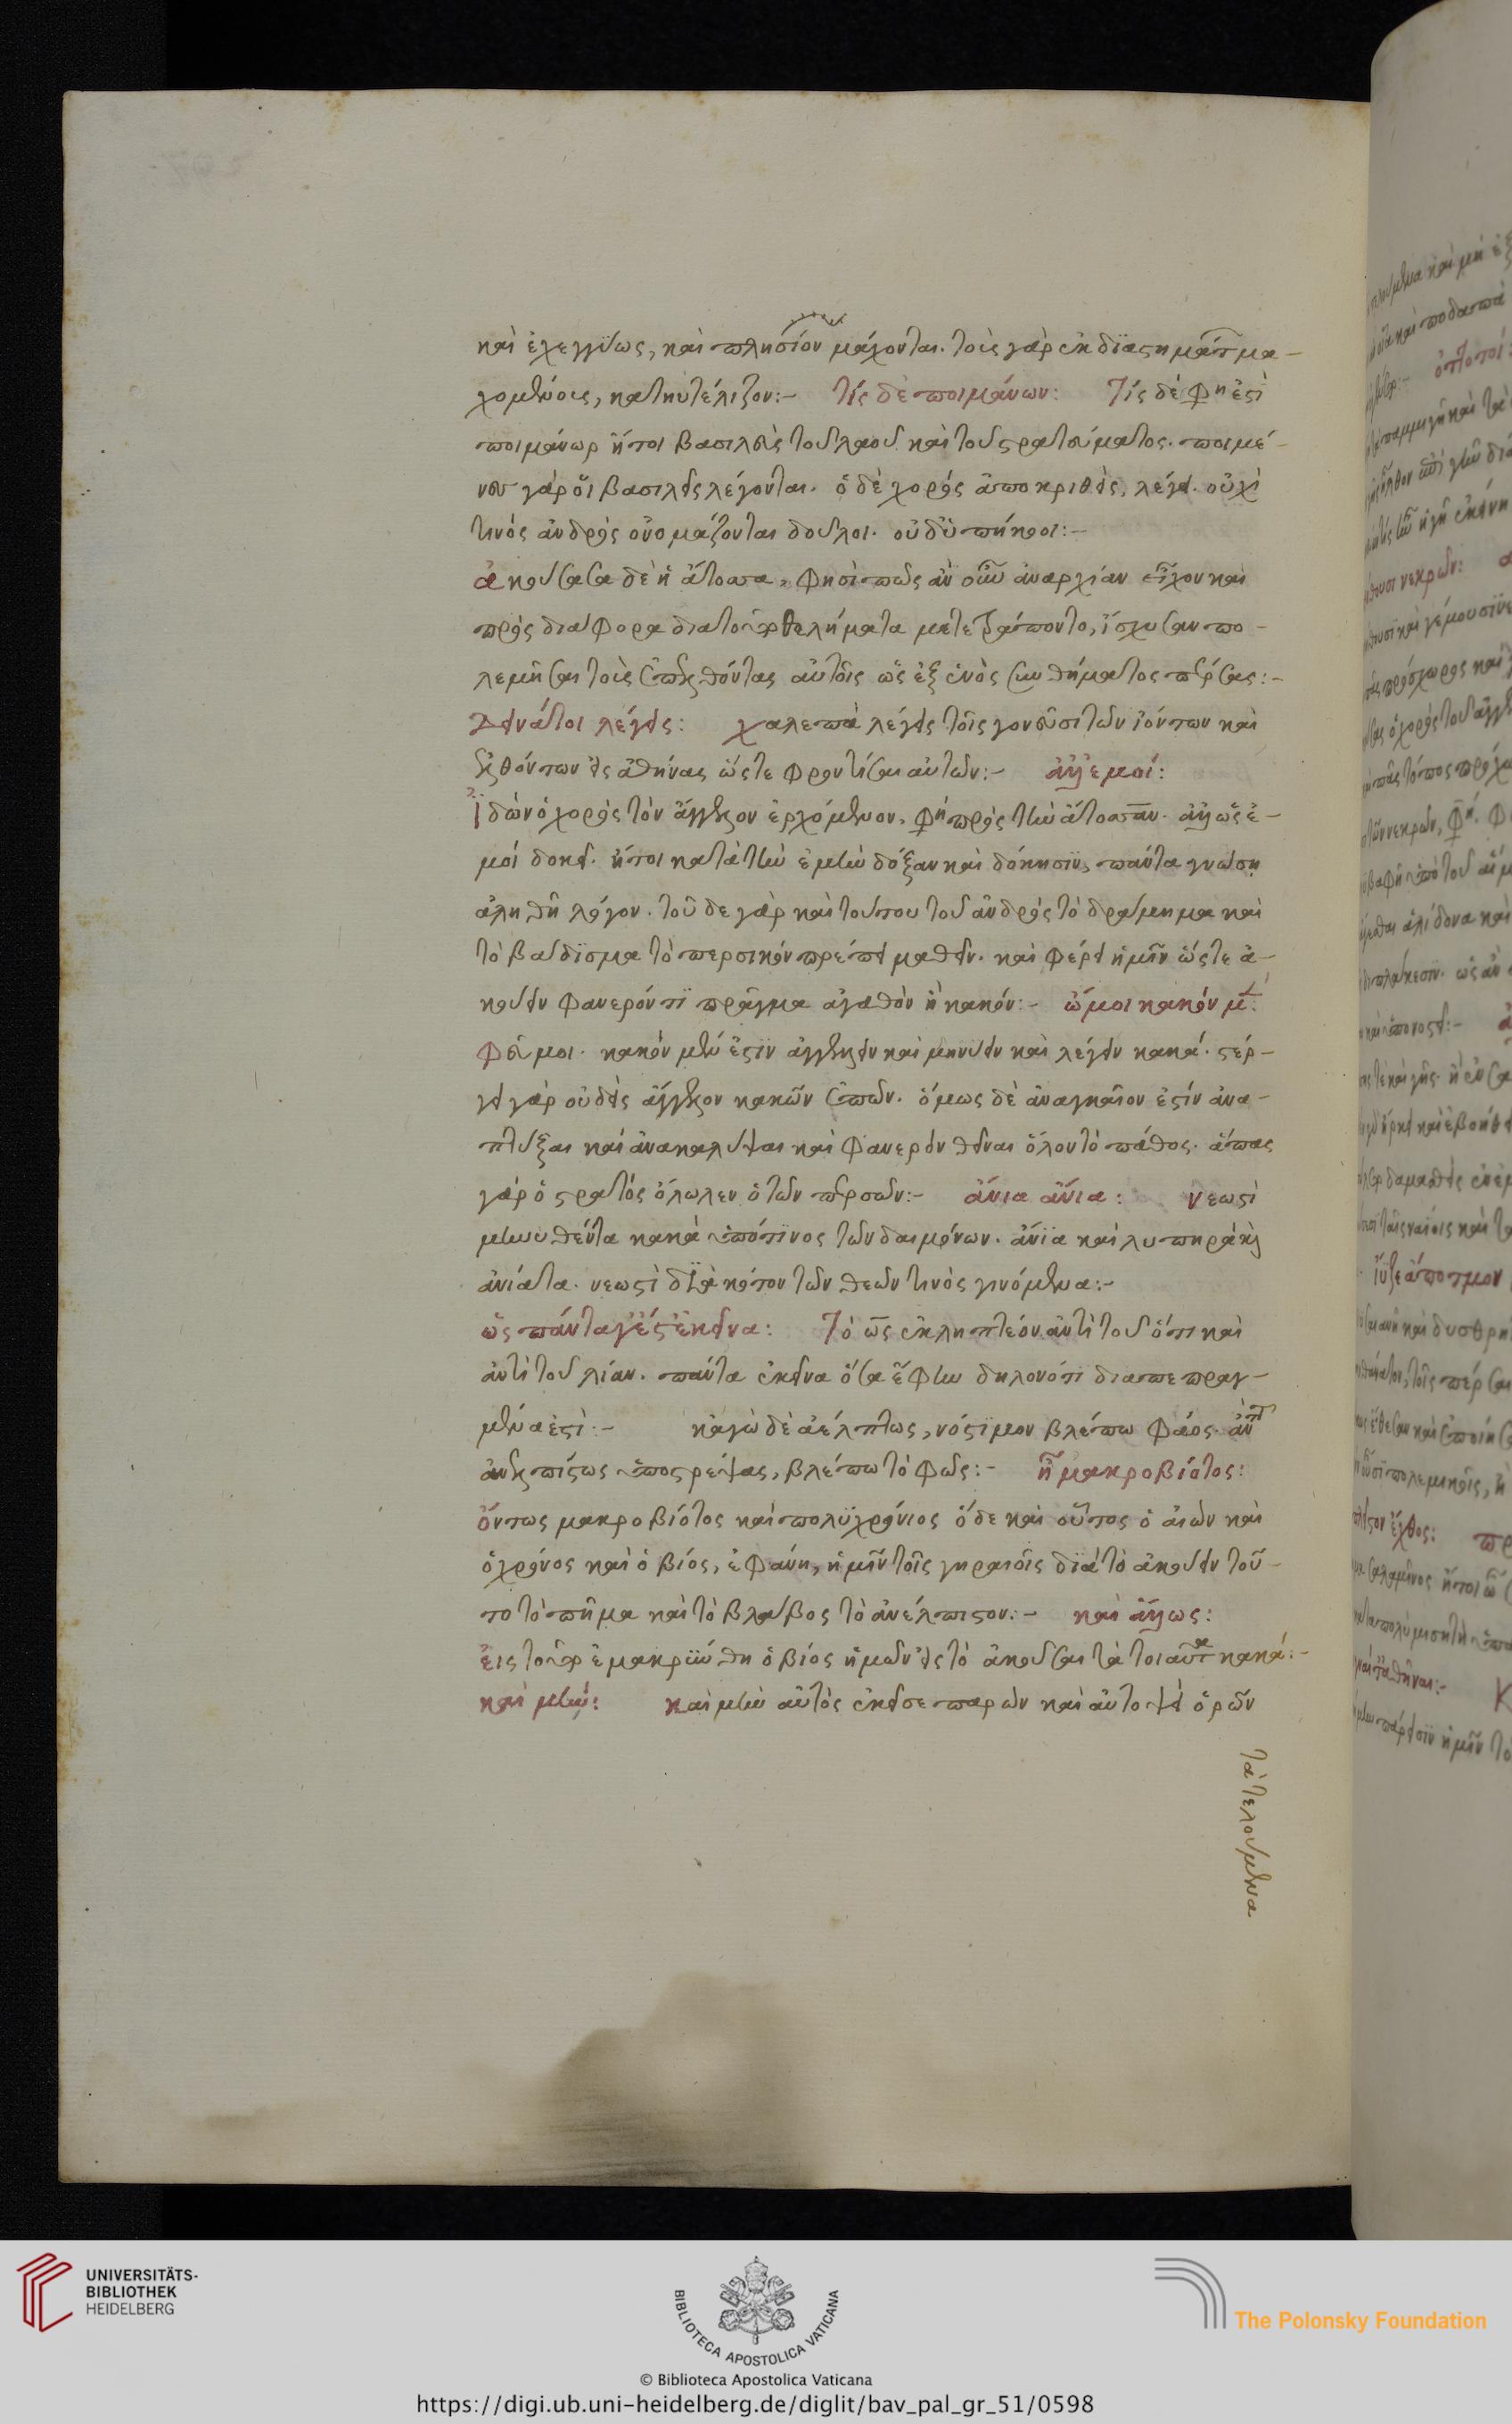 καὶ ἐχεγγύως, καὶ πλησίον μάχονται. τοὺς γὰρ ἐκ διαστημάτων μα-
χομένους, κατηυτέλιζον:- τίς δὲ ποιμάνων: Τίς δέ φησι ἐστὶ
ποιμάνωρ ἤτοι βασιλεὺς τοῦ λαοῦ καὶ τοῦ στρατεύματος. ποιμέ-
νες γὰρ οἱ βασιλεῖς λέγονται. ὁ δὲ χορὸς ἀποκριθεὶς, λέγει. οὐχὶ
τινὸς ἀνδρὸς ὀνομάζονται δοῦλοι. οὐδ' ὑπήκοοι:-
ἀκούσασα δὲ ἡ ἄτοσσα, φησὶ πῶς ἂν οὖν ἀναρχίαν εἶχον καὶ
πρὸς διάφορα διὰ τοῦτο θελήματα μετετράποντο, ἴσχυσαν πο-
λεμῆσαι τοὺς ἐπελθόντας αὐτοῖς ὡς ἐξ ἑνὸς συνθήματος πέρσας:-
Δεινά τοι λέγεις: χαλεπὰ λέγεις τοῖς γονεῦσι τῶν ἰόντων καὶ
ἐλθόντων εἰς ἀθήνας ὥστε φροντίσαι αὐτῶν:- ἀλλ' ἐμοί:
Ἰδὼν ὁ χορὸς τὸν ἄγγελον ἐρχόμενον, φησὶ πρὸς τὴν ἄτοσσαν. ἀλλ' ὡς ἐ-
μοί δοκεῖ. ἤτοι κατὰ τὴν ἐμὴν δόξαν καὶ δόκησιν, πάντα γνώσῃ
ἀληθῆ λόγον. τοῦδε γὰρ καὶ τούτου τοῦ ἀνδρὸς τὸ δράμημα καὶ
τὸ βάδισμα τὸ περσικόν πρέπει μαθεῖν. καὶ φέρει ἡμῖν ὥστε ἀ-
κούειν φανερόν τι πρᾶγμα ἀγαθὸν ἢ κακόν:- ὤμοι κακόν μὲν:
φεῦ μοι. κακόν μέν ἐστιν ἀγγέλλειν καὶ μηνύειν καὶ λέγειν κακά. στέρ-
γει γὰρ οὐδεὶς ἄγγελον κακῶν ἐπῶν. ὅμως δὲ ἀναγκαῖον ἐστὶν ἀνα-
πτύξαι καὶ ἀνακαλύψαι καὶ φανερὸν θεῖναι ὅλον τὸ πάθος. ἅπας
γὰρ ὁ στρατός ὄλωλεν ὁ τῶν περσῶν:- ἄνια ἄνια: νεωστὶ
μηνυθέντα κακὰ ὑπό τινος τῶν δαιμόνων. ἄνια καὶ λυπηρὰ καὶ
ἀνίατα. νεωστὶ διὰ κότον τῶν θεῶν τινὸς γινόμενα:-
ὡς πάντα γ' ἔστ' ἐκεῖνα: Τὸ ὡς ἐκληπτέον ἀντὶ τοῦ ὅτι καὶ
ἀντὶ τοῦ λίαν. πάντα ἐκεῖνα ὅσα ἔφην δηλονότι διαπεπραγ-
μένα ἐστὶ:- κἀγὼ δὲ ἀέλπτως, νόστιμον βλέπω φάος. ἀντὶ
ἀνελπίστως ὑποστρέψας, βλέπω τὸ φῶς:- ἦ μακροβίοτος:
ὄντως μακροβίοτος καὶ πολυχρόνιος ὅδε καὶ οὗτος ὁ αἰὼν καὶ
ὁ χρόνος καὶ ὁ βίος, ἐφάνη, ἡμῖν τοῖς γηραιοῖς διὰ τὸ ἀκούειν τοῦ-
το τὸ πῆμα καὶ τὸ βλάβος τὸ ἀνέλπιστον:- καὶ ἄλλως:
εἰς τοῦτο ἐμακρύνθη ὁ βίος ἡμῶν εἰς τὸ ἀκοῦσαι τὰ τοιαῦτα κακά:-
καὶ μὴν: καὶ μὴν αὐτὸς ἐκεῖσε παρὼν καὶ αὐτοψεὶ ὁρῶν
τὰ τελούμενα
UNIVERSITÄTS-
BIBLIOTHEK
HEIDELBERG
BIBLIOTECA APOSTOLICA VATICANA
The Polonsky Foundation
© Biblioteca Apostolica Vaticana
https://digi.ub.uni-heidelberg.de/diglit/bav_pal_gr_51/0598